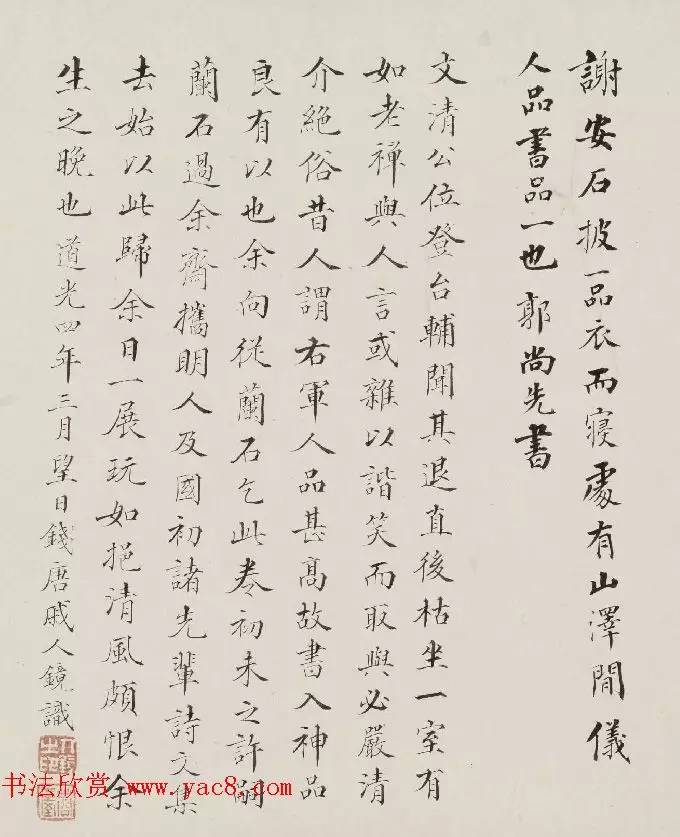 謝安石披一品衣而寝處有山澤閒儀
人品書品一也郭尚先書
文清公位登台輔聞其退直後枯坐一室有
如老禅與人言或雜以諧笑而取與必嚴清
介絕俗昔人謂右軍人品甚高故書入神品
良有以也余向從蘭石乞此卷初未之許嗣
蘭石過余齋攜明人及國初諸先輩詩文集
去始以此歸余日一展玩如挹清風頗恨余
生之晚也道光四年三月望日錢唐戚人鏡識
书法欣赏www.yac8.com